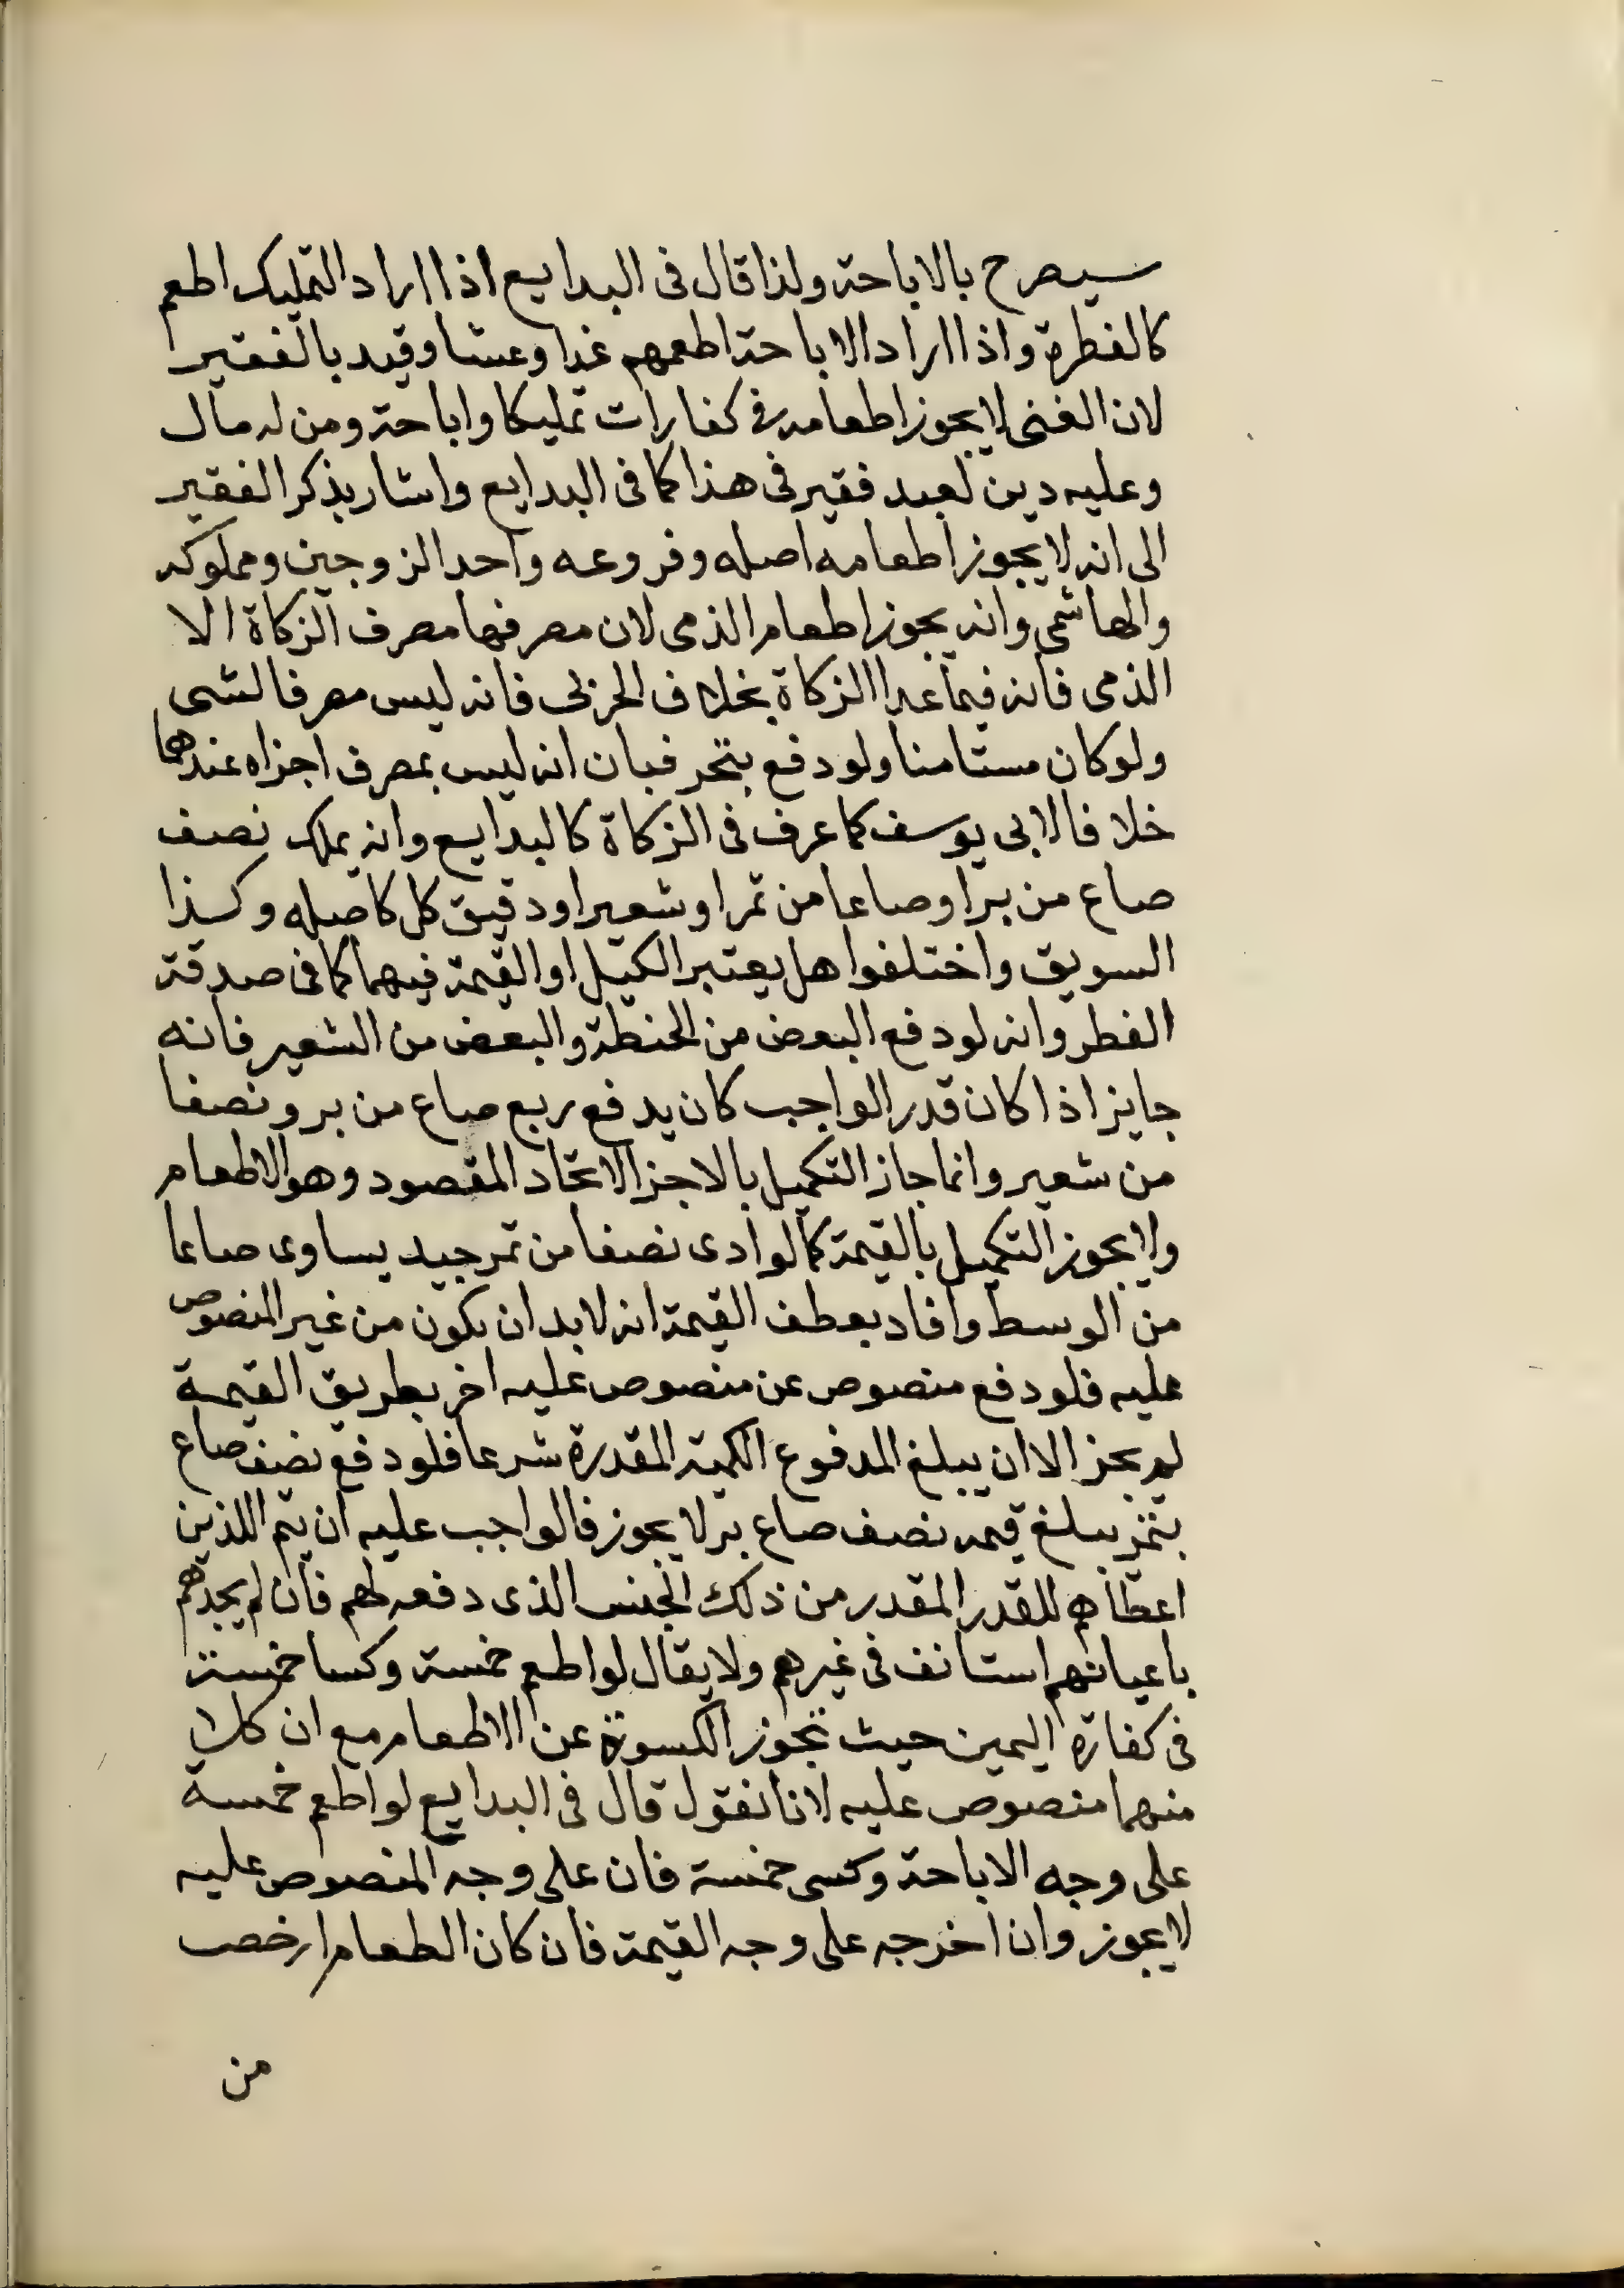 سيصرح بالاباحة ولذا قال فى البدايع اذا اراد التمليك اطعم
كالفطرة واذا اراد الاباحة اطعمهم غدا وعشا وقيد بالفقير
لان الغنى لا يجوز اطعامه فى كفارات تمليكا واباحة ومن له مال
وعليه دين لعبد فقير فى هذا كما فى البدايع واشار بذكر الفقير
الى انه لا يجوز اطعامه اصله وفروعه واحد الزوجين ومملوكه
والهاشمى وانه يجوز اطعام الذمى لان مصرفها مصرف الزكاة الا
الذمى فانه فيما عدا الزكاة بخلاف الحربى فانه ليس مصرفا لشى
ولو كان مستامنا ولو دفع بتحر فبان انه ليس بمصرف اجزاه عندهما
خلافا لابى يوسف كما عرف فى الزكاة كالبدايع وانه يملك نصف
صاع من بر او صاعا من تمر او شعير او دقيق كل كاصله وكذا
السويق واختلفوا هل يعتبر الكيل او القيمة فيهما كما فى صدقة
الفطر وانه لو دفع البعض من الحنطة والبعض من الشعير فانه
جايز اذا كان قدر الواجب كان يدفع ربع صاع من بر ونصفا
من شعير وانما جاز التكميل بالاجزا لاتحاد المقصود وهو الاطعام
ولا يجوز التكميل بالقيمة كما لو ادى نصفا من تمر جيد يساوى صاعا
من الوسط وافاد بعطف القيمة انه لا بد ان يكون من غير المنصوص
عليه فلو دفع منصوص عن منصوص عليه اخر بطريق القيمة
لم يجز الا ان يبلغ المدفوع الكمية المقدرة شرعا فلو دفع نصف صاع
بتمر يبلغ قيمه نصف صاع بر لا يجوز فالواجب عليه ان يتم اللذين
اعطاهم للقدر المقدر من ذلك الجنس الذى دفعه لهم فان لم يجدهم
باعيانهم استانف فى غيرهم ولا يقال لو اطعم خمسة وكسا خمسة
فى كفارة اليمين حيث تجوز الكسوة عن الاطعام مع ان كلا
منهما منصوص عليه لانا نقول قال فى البدايع لو اطعم خمسة
على وجه الاباحة وكسى خمسة فان على وجه المنصوص عليه
لا يجوز وان اخرجه على وجه القيمة فان كان الطعام ارخص
من